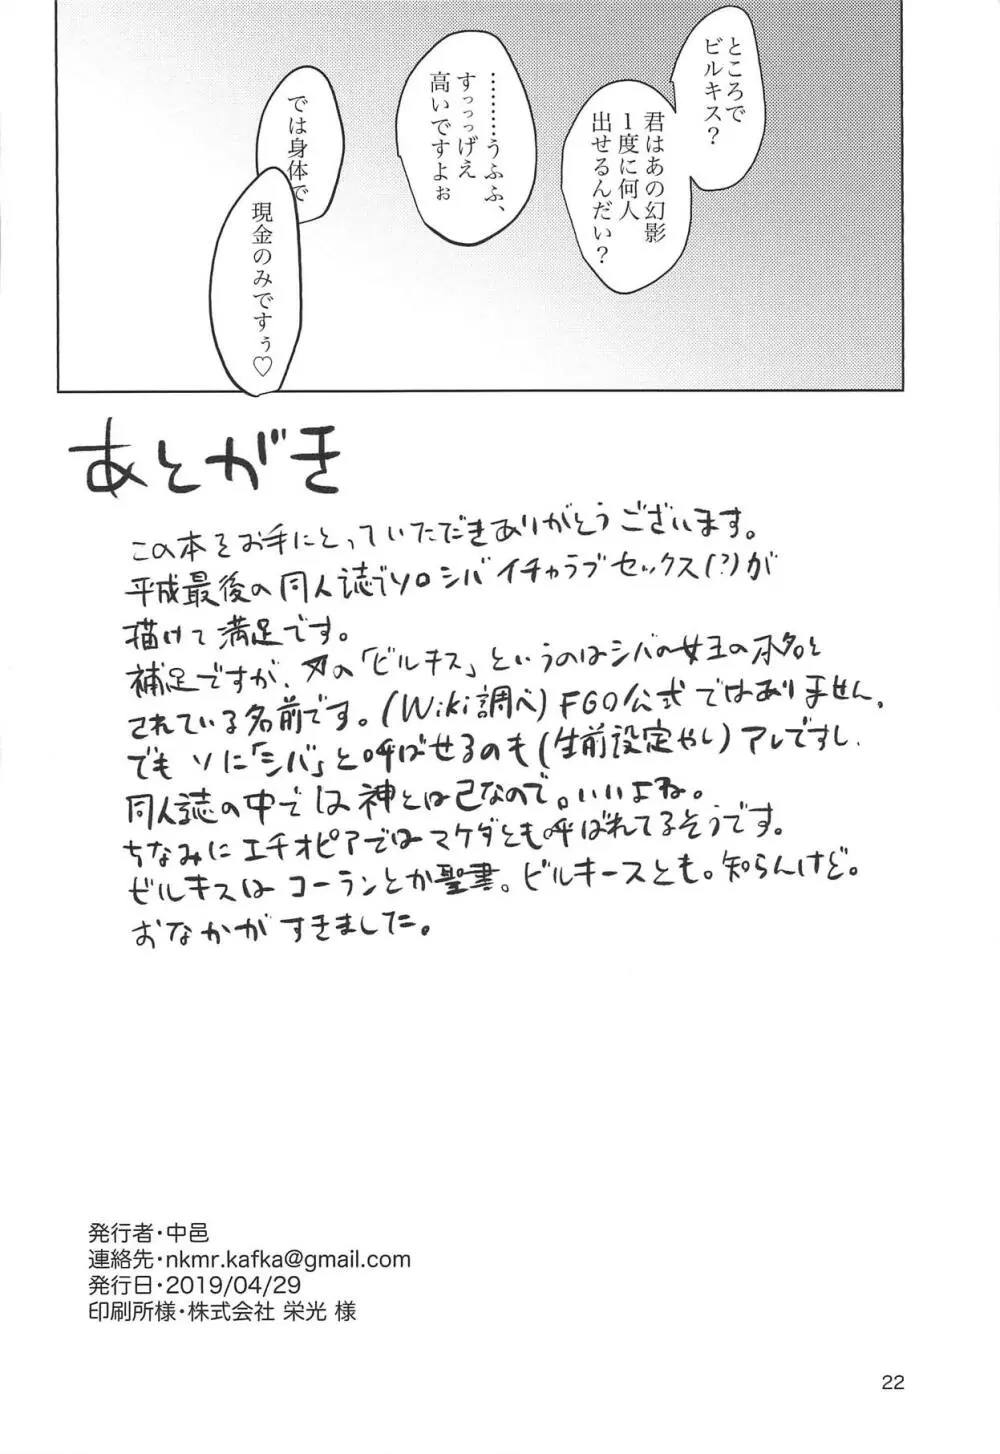 ところで
ビルキス？
君はあの幻影
１度に何人
出せるんだい？
………うふふ、
すっっっげえ
高いですよぉ
では身体で
現金のみですぅ♡
あとがき
この本をお手にとっていただきありがとうございます。
平成最後の同人誌でソロシバイチャラブセックス(?)が
描けて満足です。
補足ですが、〆の「ビルキス」というのはシバの女王の本名と
されている名前です。(Wiki調べ)FGO公式ではありません。
でもソに「シバ」と呼ばせるのも(生前設定やし)アレですし、
同人誌の中では神とは己なので。いいよね。
ちなみにエチオピアではマケダとも呼ばれてるそうです。
ビルキスはコーランとか聖書。ビルキースとも。知らんけど。
おなかがすきました。
発行者・中邑
連絡先・nkmr.kafka@gmail.com
発行日・2019/04/29
印刷所様・株式会社 栄光 様
22